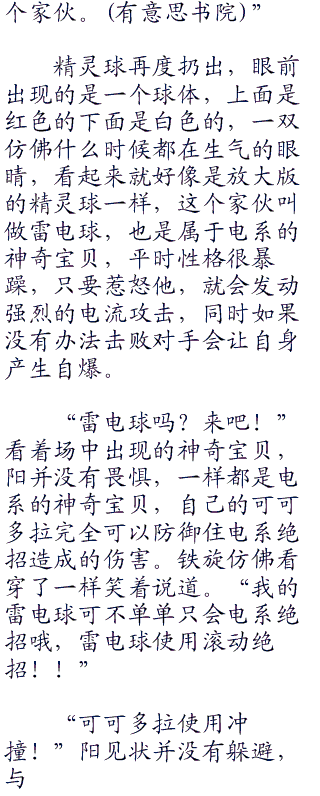 个家伙。(有意思书院)”
精灵球再度扔出，眼前
出现的是一个球体，上面是
红色的下面是白色的，一双
仿佛什么时候都在生气的眼
睛，看起来就好像是放大版
的精灵球一样，这个家伙叫
做雷电球，也是属于电系的
神奇宝贝，平时性格很暴
躁，只要惹怒他，就会发动
强烈的电流攻击，同时如果
没有办法击败对手会让自身
产生自爆。
“雷电球吗？来吧！”
看着场中出现的神奇宝贝，
阳并没有畏惧，一样都是电
系的神奇宝贝，自己的可可
多拉完全可以防御住电系绝
招造成的伤害。铁旋仿佛看
穿了一样笑着说道。“我的
雷电球可不单单只会电系绝
招哦，雷电球使用滚动绝
招！！”
“可可多拉使用冲
撞！”阳见状并没有躲避，
与